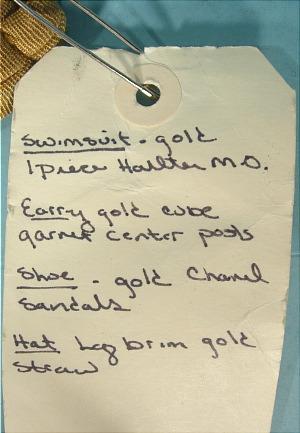 Swimsuit - gold
1 piece Hallter M.O.
Earrg gold cube
garnet center posts
Shoe - gold Chanel
Sandals
Hat Lg brim gold
straw